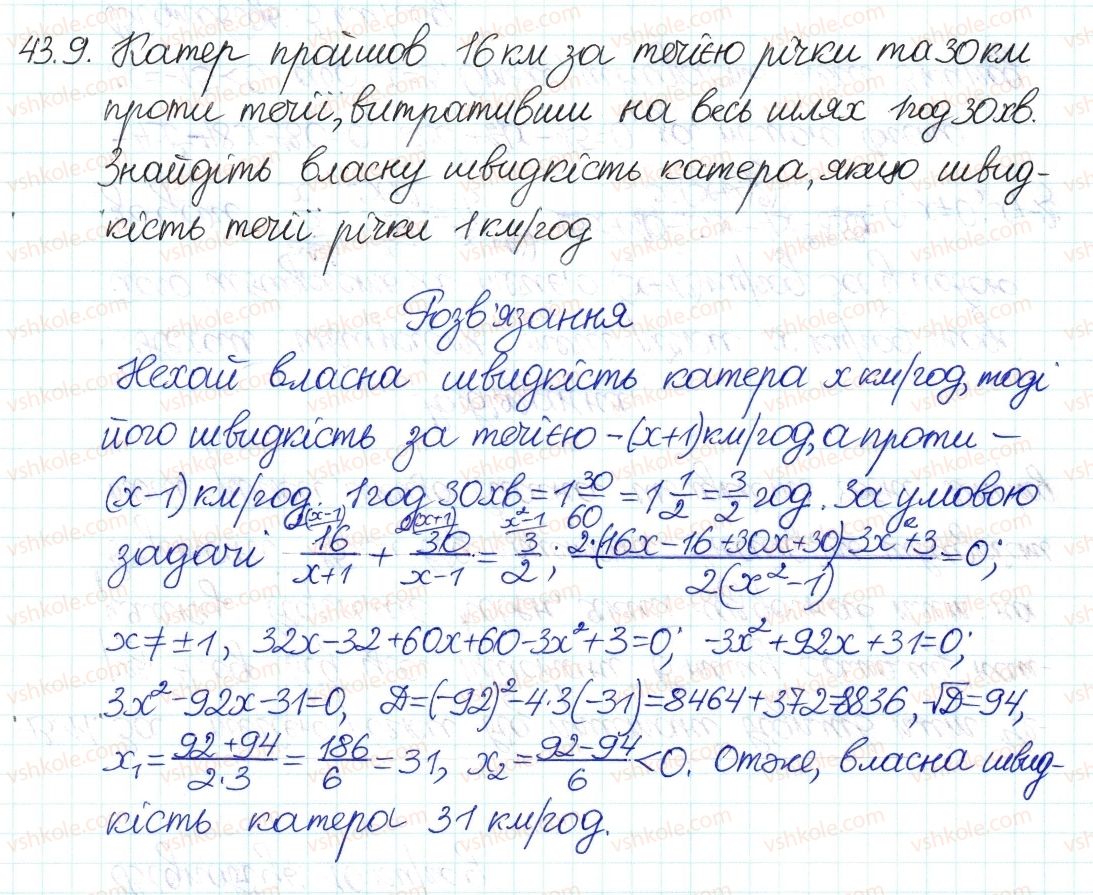 43.9. Катер пройшов 16 км за течією річки та 30 км
проти течії, витративши на весь шлях 1 год 30 хв.
Знайдіть власну швидкість катера, якщо швид-
кість течії річки 1 км/год
Розв'язання
Нехай власна швидкість катера x км/год, тоді
його швидкість за течією - (x+1) км/год, а проти -
(x-1) км/год. 1 год 30 хв = 1 30/60 = 1 1/2 = 3/2 год. За умовою
задачі 16/(x+1) + 30/(x-1) = 3/2; (2·(16x-16+30x+30)-3x²+3)/(2(x²-1)) = 0;
x ≠ ±1, 32x-32+60x+60-3x²+3=0; -3x²+92x+31=0;
3x²-92x-31=0, D=(-92)²-4·3(-31)=8464+372=8836, √D=94,
x₁ = (92+94)/(2·3) = 186/6 = 31, x₂ = (92-94)/6 < 0. Отже, власна швид-
кість катера 31 км/год.